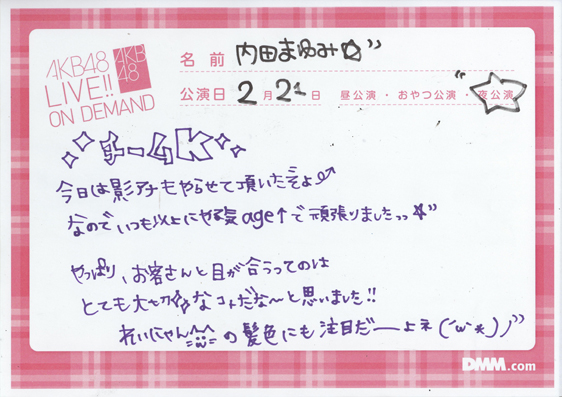 AKB48
LIVE!!
ON DEMAND
AKB
48
名前 内田まゆみ☆”
公演日 2月21日 昼公演・おやつ公演・夜公演
チームK
今日は影アナもやらせて頂いたぞょ
なのでいつも以上にやる気age↑で頑張りましたっっ☆”
やっぱり、お客さんと目が合うってのは
とても大切なコトだな〜と思いました!!
れいにゃん^^の髪色にも注目だーよネ(´ω`*)ノ”
DMM.com